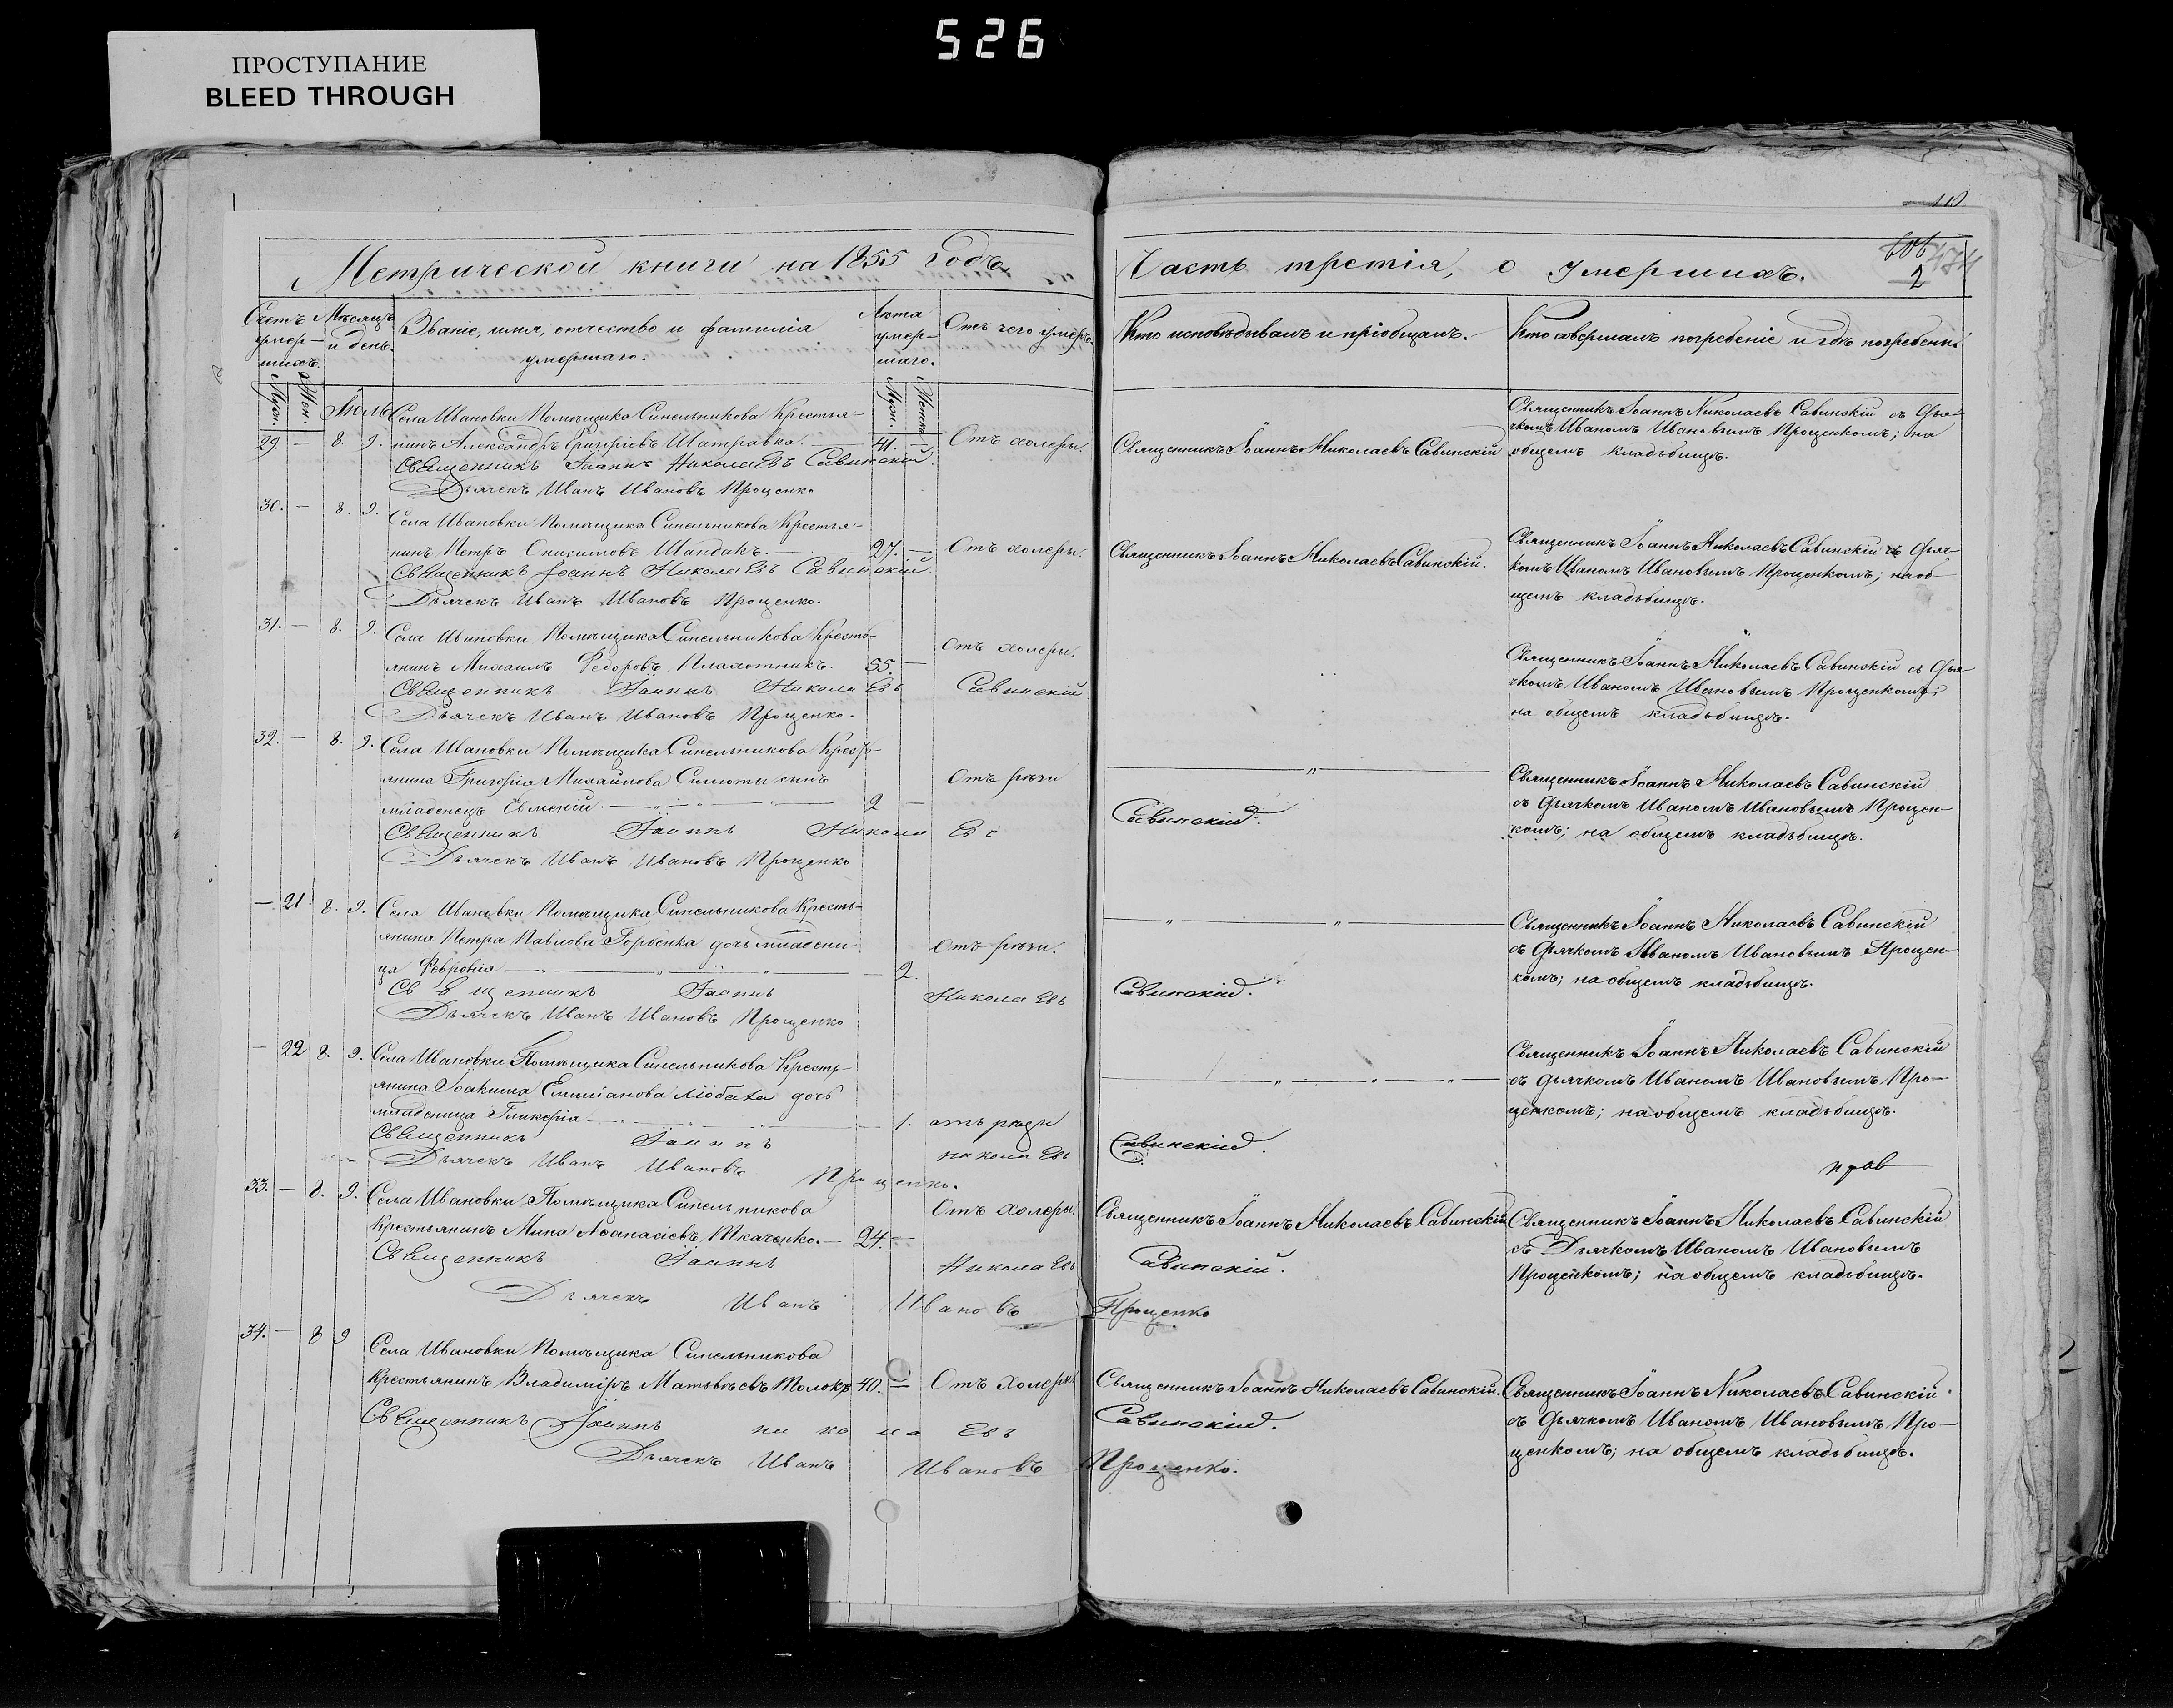 526
ПРОСТУПАНИЕ
BLEED THROUGH
Метрической книги на 1855 годъ
Счетъ умер-
шихъ.
Муж.
Жен.
Мѣсяцъ
и день.
Званіе, имя, отчество и фамилія
умершаго.
Лѣта
умер-
шаго.
Муж.
Женск.
Отъ чего умеръ.
Іюль
29. — 8. 9. Села Ивановки Помѣщика Синельникова Крестья-
нинъ Александръ Григоріевъ Шатравка. — 41. — Отъ холеры.
Священникъ Іоаннъ Николаевъ Савинскій.
Дьячекъ Иванъ Ивановъ Проценко
30. — 8. 9. Села Ивановки Помѣщика Синельникова Крестья-
нинъ Петръ Онисимовъ Шандакъ. — 27. — Отъ холеры.
Священникъ Іоаннъ Николаевъ Савинскій.
Дьячекъ Иванъ Ивановъ Проценко.
31. — 8. 9. Села Ивановки Помѣщика Синельникова Кресть-
янинъ Михаилъ Федоровъ Плахотникъ. 55. — Отъ холеры.
Священникъ Іоаннъ Николаевъ Савинскій
Дьячекъ Иванъ Ивановъ Проценко.
32. — 8. 9. Села Ивановки Помѣщика Синельникова Кресть-
янина Григорія Михайлова сынъ
младенецъ — 2 — Отъ рѣзи
Священникъ Іоаннъ Николаевъ Савинскій.
Дьячекъ Иванъ Ивановъ Проценко
— 21. 8. 9. Села Ивановки Помѣщика Синельникова Кресть-
янина Петра Павлова Горбенка дочь младени-
ца Февронія — 2. Отъ рѣзи.
Священникъ Іоаннъ Николаевъ Савинскій.
Дьячекъ Иванъ Ивановъ Проценко
— 22 8. 9. Села Ивановки Помѣщика Синельникова Кресть-
янина Іоакима Емиліанова дочь
младеница Гликерія — 1. отъ рѣзи
Священникъ Іоаннъ Николаевъ Савинскій.
Дьячекъ Иванъ Ивановъ Проценко.
33. — 8. 9. Села Ивановки Помѣщика Синельникова
Крестьянинъ Мина Аѳанасіевъ Ткаченко. — 24. — Отъ холеры.
Священникъ Іоаннъ Николаевъ Савинскій.
Дьячекъ Иванъ Ивановъ Проценко
34. — 8 9 Села Ивановки Помѣщика Синельникова
Крестьянинъ Владиміръ Матвѣевъ 40. — Отъ холеры
Священникъ Іоаннъ николаевъ Савинскій.
Дьячекъ Иванъ Ивановъ Проценко.
Часть третія, о умершихъ.
474
2
Кто исповѣдывалъ и пріобщалъ.
Кто совершалъ погребеніе и гдѣ погребены
Священникъ Іоаннъ Николаевъ Савинскій
Священникъ Іоаннъ Николаевъ Савинскій съ Дья-
чкомъ Иваномъ Ивановымъ Проценкомъ; на
общемъ кладьбищѣ.
Священникъ Іоаннъ Николаевъ Савинскій.
Священникъ Іоаннъ Николаевъ Савинскій съ Дьяч-
комъ Иваномъ Ивановымъ Проценкомъ; на об-
щемъ кладьбищѣ.
Священникъ Іоаннъ Николаевъ Савинскій съ Дья-
чкомъ Иваномъ Ивановымъ Проценкомъ;
на общемъ кладьбищѣ.
Священникъ Іоаннъ Николаевъ Савинскій
съ Дьячкомъ Иваномъ Ивановымъ Процен-
комъ; на общемъ кладьбищѣ.
Священникъ Іоаннъ Николаевъ Савинскій
съ Дьячкомъ Иваномъ Ивановымъ Процен-
комъ; на общемъ кладьбищѣ.
Священникъ Іоаннъ Николаевъ Савинскій
съ дьячкомъ Иваномъ Ивановымъ Про-
ценкомъ; на общемъ кладьбищѣ.
Священникъ Іоаннъ Николаевъ Савинскій
Священникъ Іоаннъ Николаевъ Савинскій
съ Дьячкомъ Иваномъ Ивановымъ
Проценкомъ; на общемъ кладьбищѣ.
Священникъ Іоаннъ Николаевъ Савинскій.
Священникъ Іоаннъ Николаевъ Савинскій
съ Дьячкомъ Иваномъ Ивановымъ Про-
ценкомъ; на общемъ кладьбищѣ.